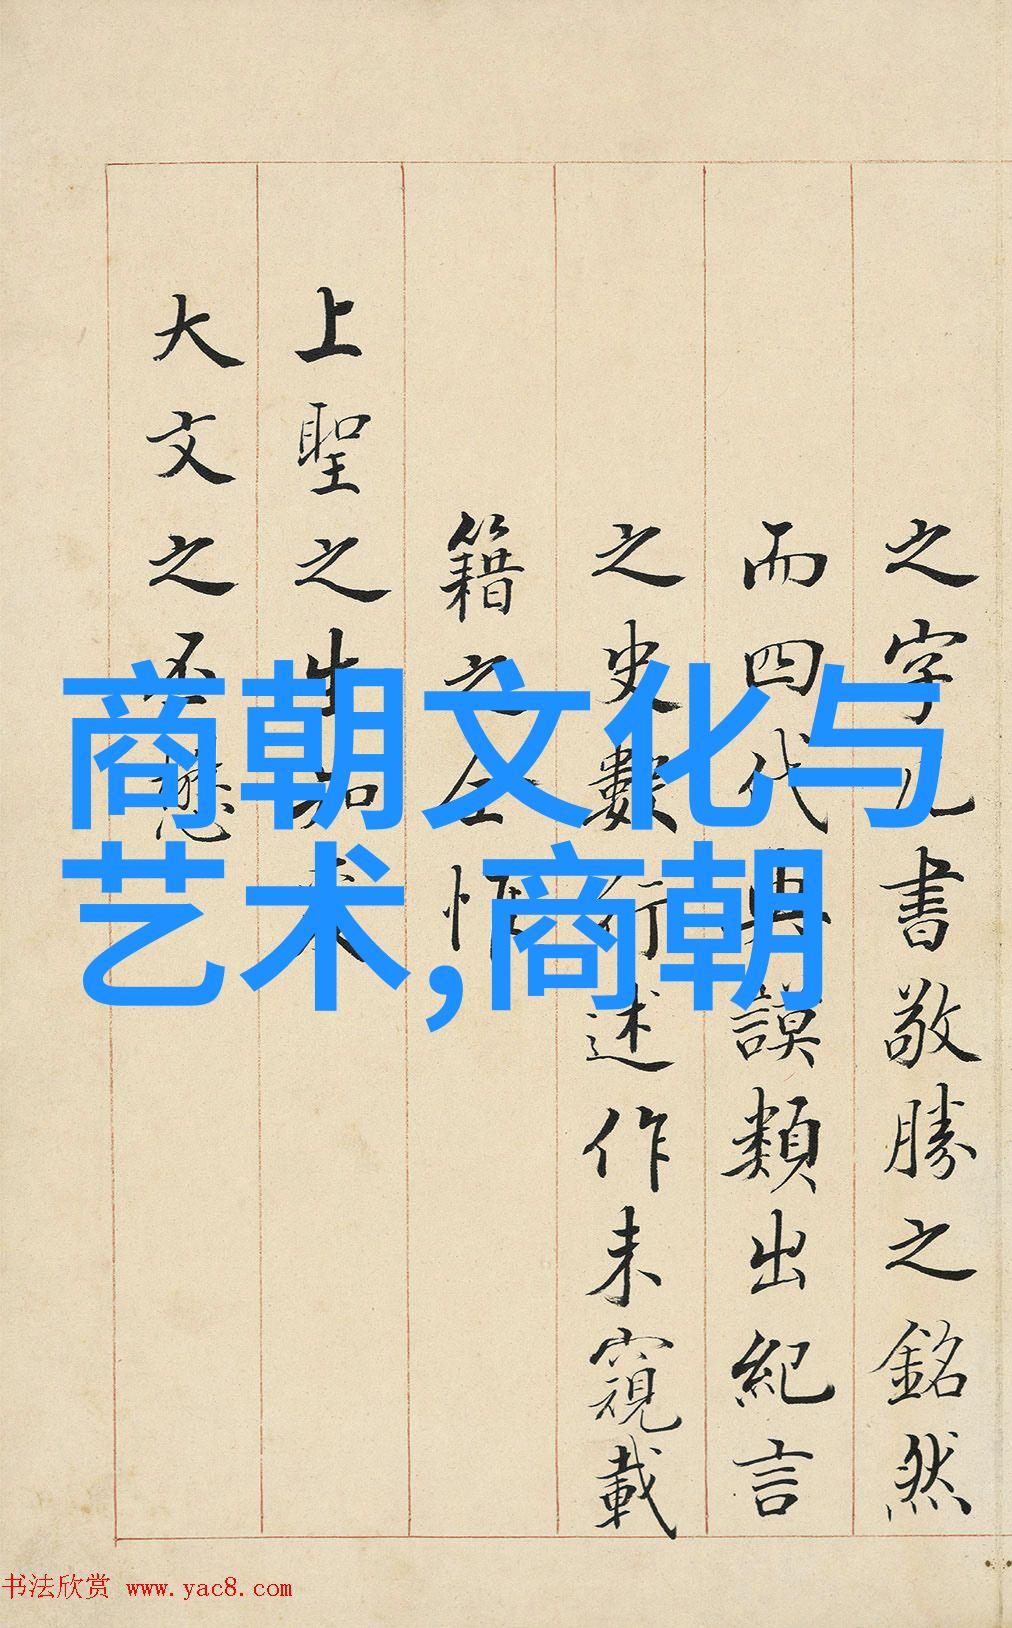 之字書敬勝之銘然
而四代典謨類出紀言
之史數行述作未窺載
籍之全惟
上聖之生知
大文之丕懋
商朝文化与
艺术,商朝
书法欣赏 www.yac8.com